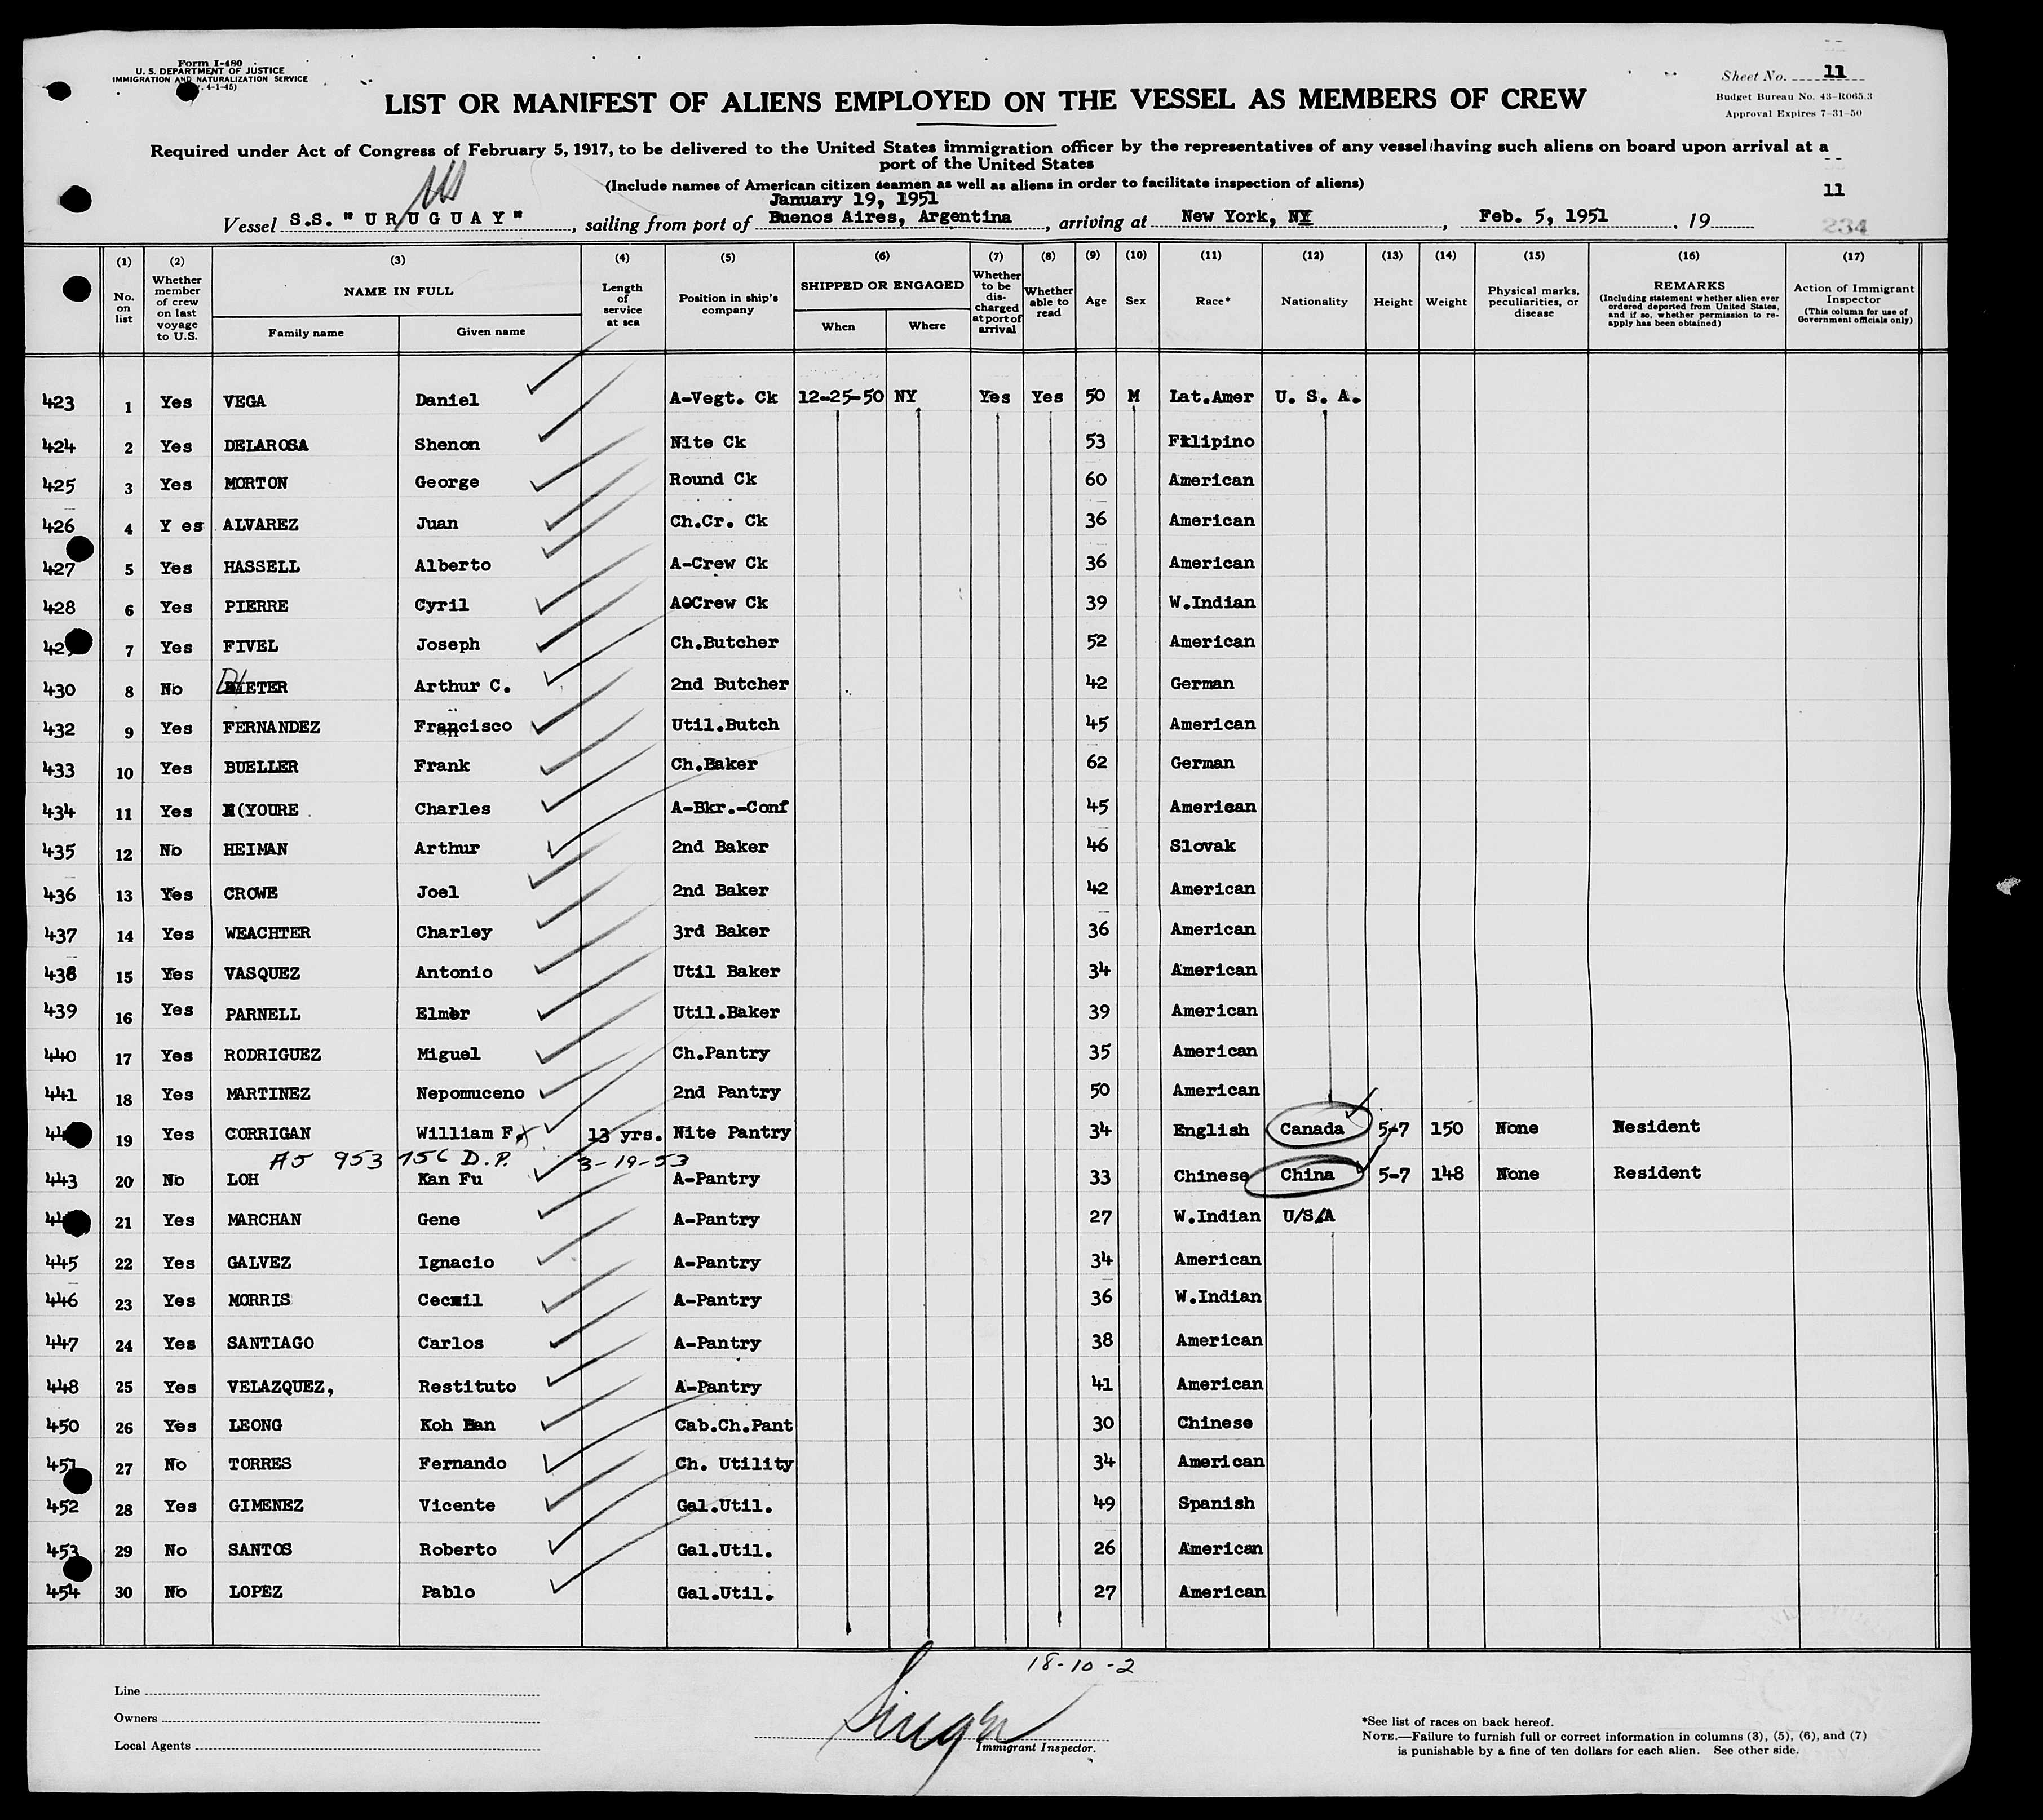 Form I-480
U. S. DEPARTMENT OF JUSTICE
IMMIGRATION AND NATURALIZATION SERVICE
4-1-45)
Sheet No. 11
Budget Bureau No. 43-R065.3
Approval Expires 7-31-50
LIST OR MANIFEST OF ALIENS EMPLOYED ON THE VESSEL AS MEMBERS OF CREW
Required under Act of Congress of February 5, 1917, to be delivered to the United States immigration officer by the representatives of any vessel having such aliens on board upon arrival at a
port of the United States
(Include names of American citizen seamen as well as aliens in order to facilitate inspection of aliens)
11
January 19, 1951
Vessel S.S. "URUGUAY", sailing from port of Buenos Aires, Argentina, arriving at New York, NY, Feb. 5, 1951, 19
234
(1) No. on list
(2) Whether member of crew on last voyage to U.S.
(3) NAME IN FULL Family name Given name
(4) Length of service at sea
(5) Position in ship's company
(6) SHIPPED OR ENGAGED When Where
(7) Whether to be discharged at port of arrival
(8) Whether able to read
(9) Age
(10) Sex
(11) Race*
(12) Nationality
(13) Height
(14) Weight
(15) Physical marks, peculiarities, or disease
(16) REMARKS (Including statement whether alien ever ordered deported from United States, and if so, whether permission to re-apply has been obtained)
(17) Action of Immigrant Inspector (This column for use of Government officials only)
423 1 Yes VEGA Daniel A-Vegt. Ck 12-25-50 NY Yes Yes 50 M Lat.Amer U. S. A.
424 2 Yes DELAROSA Shenon Nite Ck 53 Filipino
425 3 Yes MORTON George Round Ck 60 American
426 4 Y es ALVAREZ Juan Ch.Cr. Ck 36 American
427 5 Yes HASSELL Alberto A-Crew Ck 36 American
428 6 Yes PIERRE Cyril AOCrew Ck 39 W.Indian
42 7 Yes FIVEL Joseph Ch.Butcher 52 American
430 8 No DIETER Arthur C. 2nd Butcher 42 German
432 9 Yes FERNANDEZ Francisco Util.Butch 45 American
433 10 Yes BUELLER Frank Ch.Baker 62 German
434 11 Yes (YOURE Charles A-Bkr.-Conf 45 American
435 12 No HEIMAN Arthur 2nd Baker 46 Slovak
436 13 Yes CROWE Joel 2nd Baker 42 American
437 14 Yes WEACHTER Charley 3rd Baker 36 American
438 15 Yes VASQUEZ Antonio Util Baker 34 American
439 16 Yes PARNELL Elmer Util.Baker 39 American
440 17 Yes RODRIGUEZ Miguel Ch.Pantry 35 American
441 18 Yes MARTINEZ Nepomuceno 2nd Pantry 50 American
44 19 Yes CORRIGAN William F. 13 yrs. Nite Pantry 34 English Canada 5-7 150 None Resident
A5 953 156 D.P. 3-19-53
443 20 No LOH Kan Fu A-Pantry 33 Chinese China 5-7 148 None Resident
44 21 Yes MARCHAN Gene A-Pantry 27 W.Indian U/S/A
445 22 Yes GALVEZ Ignacio A-Pantry 34 American
446 23 Yes MORRIS Cecil A-Pantry 36 W.Indian
447 24 Yes SANTIAGO Carlos A-Pantry 38 American
448 25 Yes VELAZQUEZ, Restituto A-Pantry 41 American
450 26 Yes LEONG Koh Ban Cab.Ch.Pant 30 Chinese
451 27 No TORRES Fernando Ch. Utility 34 American
452 28 Yes GIMENEZ Vicente Gal.Util. 49 Spanish
453 29 No SANTOS Roberto Gal.Util. 26 American
454 30 No LOPEZ Pablo Gal.Util. 27 American
18-10-2
Line
Owners
Local Agents
Singer
Immigrant Inspector.
*See list of races on back hereof.
NOTE.—Failure to furnish full or correct information in columns (3), (5), (6), and (7)
is punishable by a fine of ten dollars for each alien. See other side.